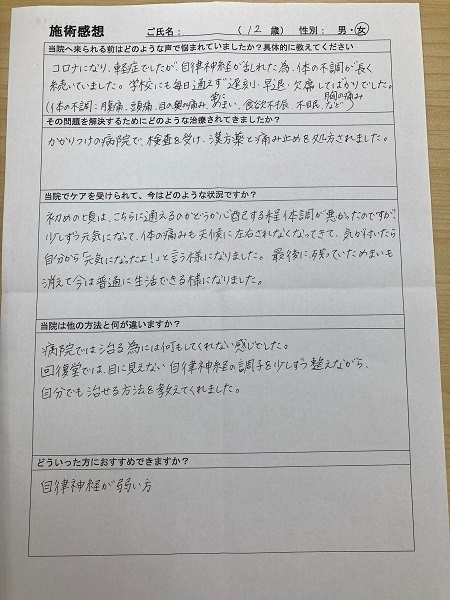 施術感想 ご氏名: (12歳) 性別: 男・女
当院へ来られる前はどのような声で悩まれていましたか?具体的に教えてください
コロナになり、軽症でしたが、自律神経が乱れた為、体の不調が長く
続いていました。学校にも毎日通えず遅刻・早退・欠席してばかりでした。
(体の不調:腹痛、頭痛、目の奥の痛み、めまい、食欲不振、不眠、胸の痛みなど)
その問題を解決するためにどのような治療されてきましたか?
かかりつけの病院で、検査を受け、漢方薬と痛み止めを処方されました。
当院でケアを受けられて、今はどのような状況ですか?
初めの頃は、こちらに通えるのかどうか心配する程体調が悪かったのですが、
少しずつ元気になって、体の痛みも天候に左右されなくなってきて、気が付いたら
自分から「元気になったよ!」と言う様になりました。最後に残っていためまいも
消えて今は普通に生活できる様になりました。
当院は他の方法と何が違いますか?
病院では治る為には何もしてくれない感じでした。
回復堂では、目に見えない自律神経の調子を少しずつ整えながら、
自分でも治せる方法を教えてくれました。
どういった方におすすめできますか?
自律神経が弱い方